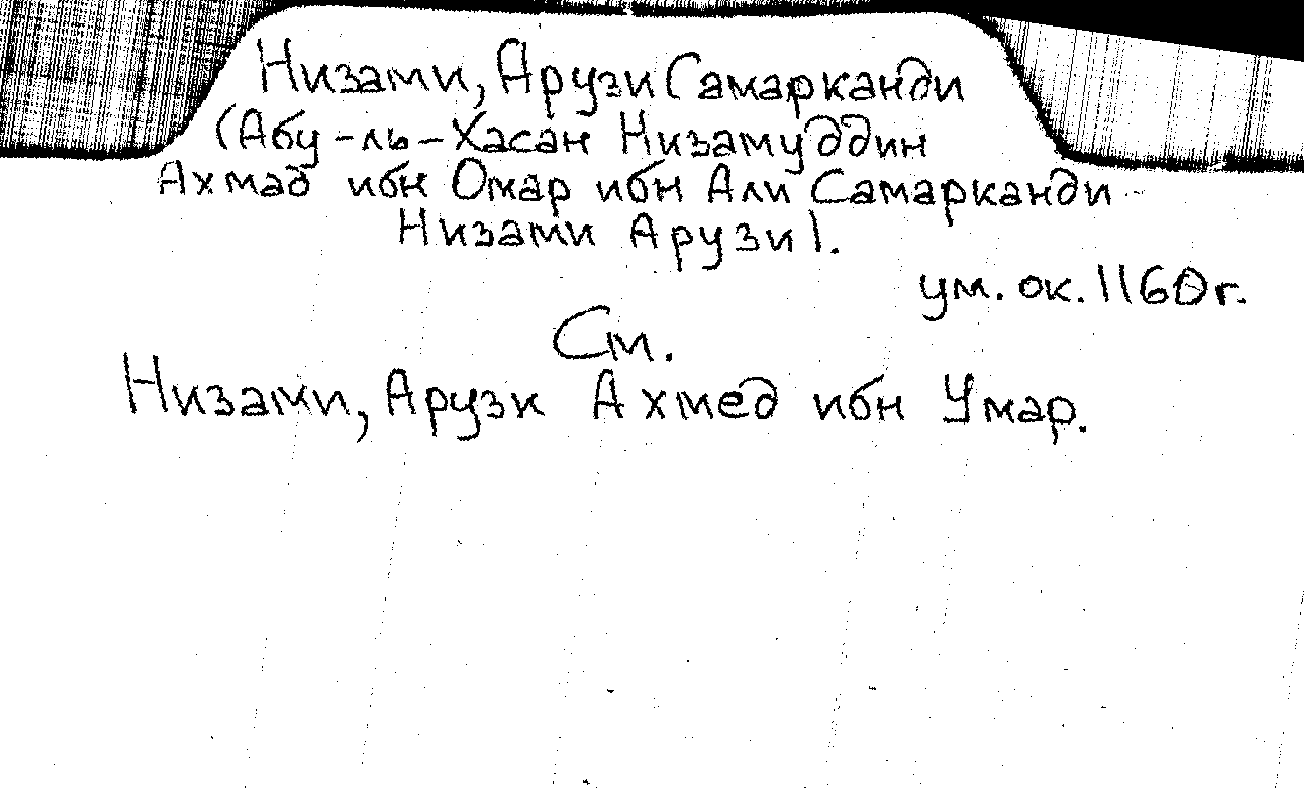 Низами, Арузи Самарканди
(Абу-ль-Хасан Низамуддин
Ахмад ибн Омар ибн Али Самарканди
Низами Арузи).
ум. ок. 1160 г.
См.
Низами, Арузи Ахмед ибн Умар.